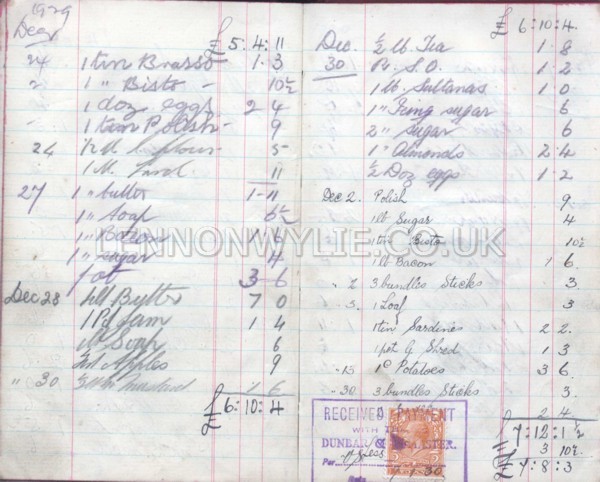 1929
Decr
£ 5:4:11
24 1 tin Brasso 1·3
1 " Bisto 10½
1 doz eggs 2 4
1 tin Polish 9
24 flour 5
1 lb. Lard 11
27 1 " butter 1-11
1 " Soap 6½
1 " Bacon 1 6
1 " sugar 4
3-6
Dec 28 Butter 7 0
1 Pd Jam 1 4
Soap 6
Apples 9
" 30 1 6
£ 6:10:4
£ 6:10:4.
Dec. ½ lb. Tea 1·8
30 Pr. S.O. 1·2
1 lb. Sultanas 1 0
1 " Icing sugar 6
2 " sugar 6
1 " Almonds 2·4
½ Doz eggs 1·2
Dec 2. Polish 9
1 lb Sugar 4
1 tin Bisto 10½
1 lb Bacon 1 6.
" 2 3 bundles Sticks 3
" 3. 1 Loaf 3
1 tin Sardines 2 2.
1 pot G Shred 1 3
" 13 1 c Potatoes 3 6
" 30 3 bundles Sticks 3.
2 4
£ 7:12:1½
3 10½
£ 7:8:3
RECEIVED PAYMENT
WITH THANKS
DUNBAR &
Per
9/1/30
Date
LENNONWYLIE.CO.UK